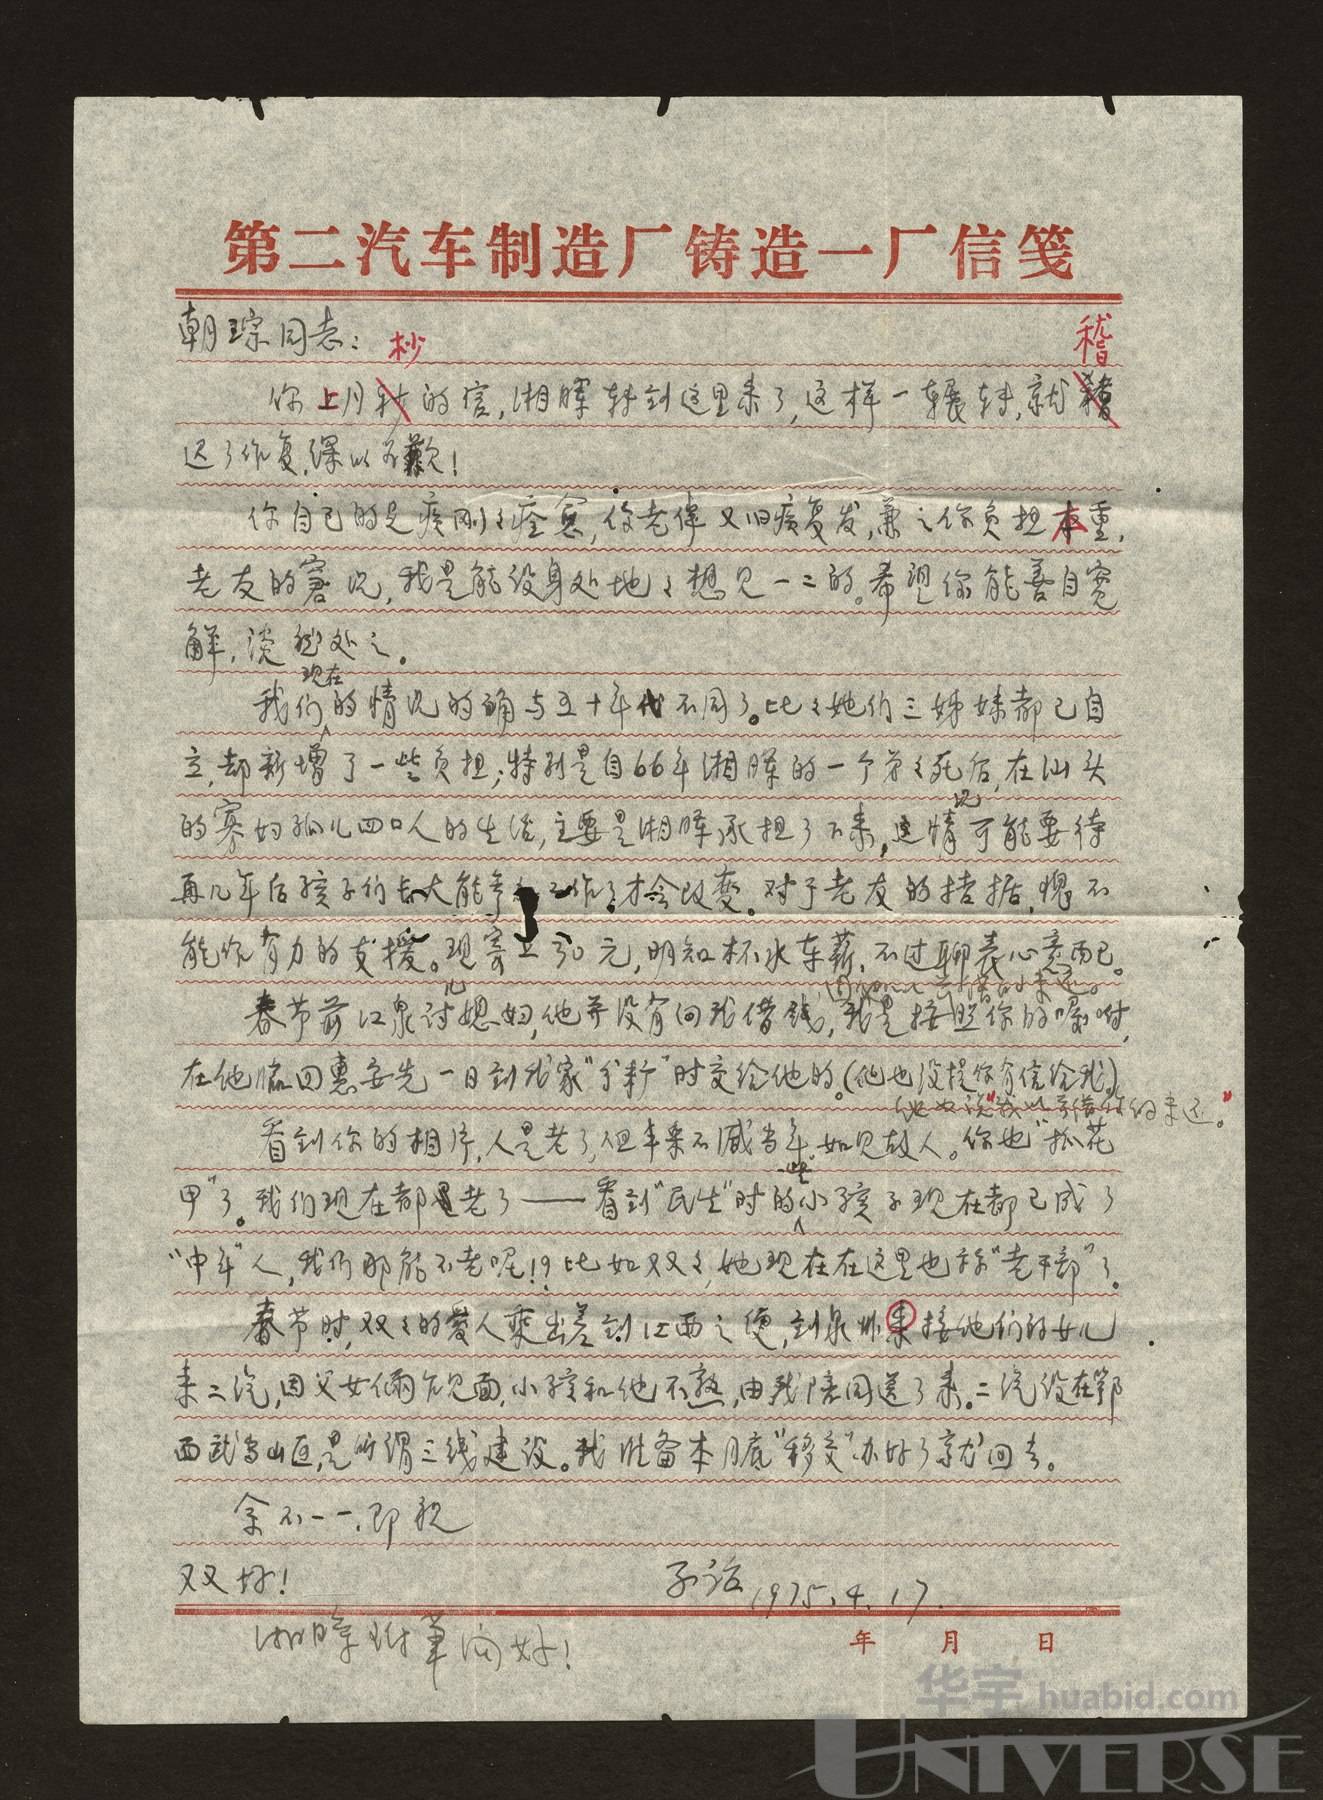 第二汽车制造厂铸造一厂信笺
朝琮同志：
杪 稽
你上月的信，湘晖转到这里来了，这样一辗转，就
迟了作复，深以为歉！
你自己的足疾刚刚痊愈，你老伴又旧疾复发，兼之你负担本重，
老友的窘况，我是能设身处地地想见一二的。希望你能善自宽
解，淡然处之。
现在
我们的情况的确与五十年代不同了。比比她们三姊妹都已自
立，却新增了一些负担；特别是自66年湘晖的一个弟弟死后，在汕头
况
的寡妇孤儿四口人的生活，主要是湘晖承担了下来，这情可能要待
再几年后孩子们长大能参 工作了才会改变。对于老友的拮据，愧不
能作有力的支援。现寄上30元，明知杯水车薪，不过聊表心意而已。
儿
春节前江泉讨媳妇，他并没有向我借钱，我是按照你的嘱咐，
在他临回惠安先一日到我家"辞"时交给他的。（他也没提你有信给我）
的未还。"
看到你的相片，人是老了，但丰采不减当年，如见故人。你也"抓花
些
甲"了。我们现在都是老了——看到"民生"时的小孩子现在都已成了
"中年"人，我们那能不老呢！？比如双双，她现在在这里也称"老干部"了。
春节时，双双的爱人乘出差到江西之便，到泉州来接他们的女儿
来二汽，因父女俩乍见面，小孩和他不熟，由我陪同送了来。二汽设在鄂
西武当山区，是所谓三线建设。我准备本月底"移交"办好了就回去。
余不一一，即祝
双好！
1975.4.17.
年 月 日
湘晖附笔问好！
华宇 huabid.com
UNIVERSE